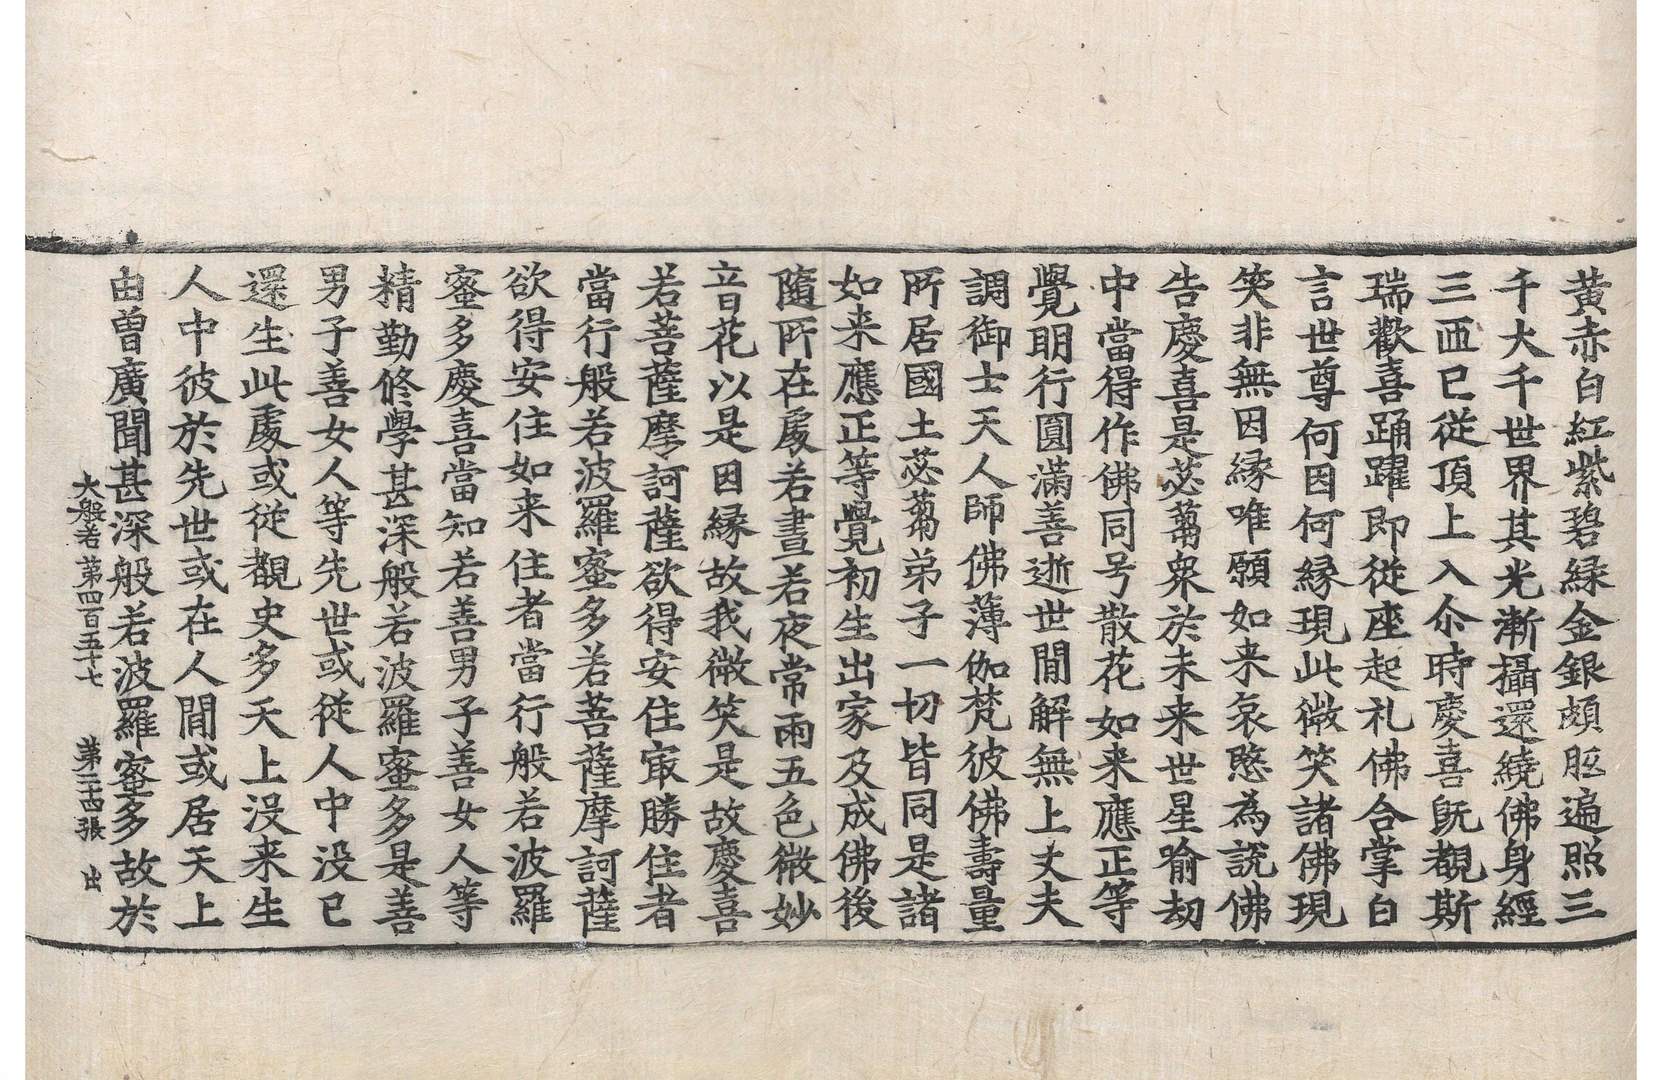 黄赤白紅紫碧緑金銀頗胝遍照三
千大千世界其光漸攝還繞佛身經
三帀已從頂上入尒時慶喜既覩斯
瑞歡喜踊躍即從座起礼佛合掌白
言世尊何因何縁現此微笑諸佛現
笑非無因縁唯願如来哀愍為說佛
告慶喜是苾蒭衆於未来世星喻劫
中當得作佛同号散花如来應正等
覺明行圓滿善逝世間解無上丈夫
調御士天人師佛薄伽梵彼佛壽量
所居國土苾蒭弟子一切皆同是諸
如来應正等覺初生出家及成佛後
隨所在處若晝若夜常雨五色微妙
音花以是因縁故我微笑是故慶喜
若菩薩摩訶薩欲得安住冣勝住者
當行般若波羅蜜多若菩薩摩訶薩
欲得安住如来住者當行般若波羅
蜜多慶喜當知若善男子善女人等
精勤修學甚深般若波羅蜜多是善
男子善女人等先世或從人中没已
還生此處或從覩史多天上没来生
人中彼於先世或在人間或居天上
由曽廣聞甚深般若波羅蜜多故於
大般若第四百五十七　第二十四張　出